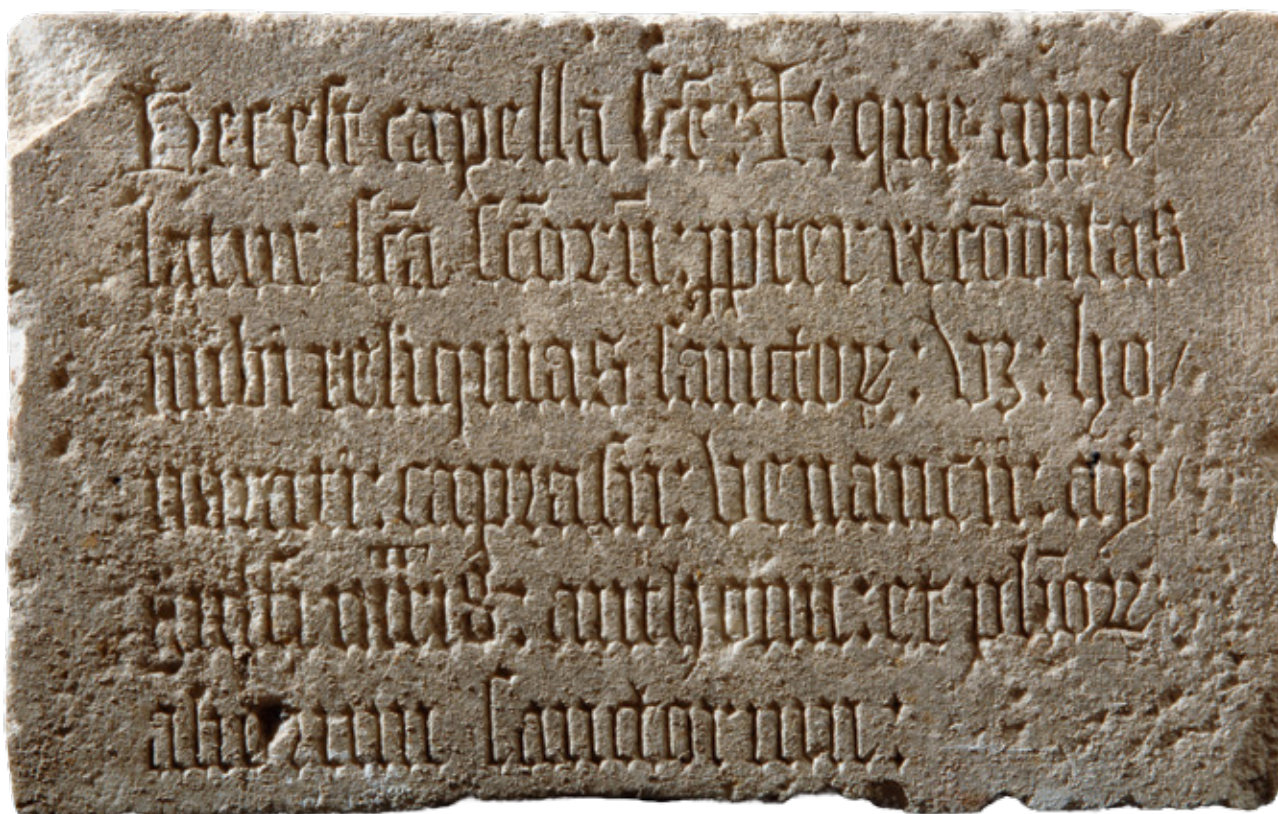 Hec est capella scē : ✝ : que appel/
latur scā scōrū : ꝓpter recōditas
inibi reliquias sanctoꝝ : Vꝫ : ho/
norati : caprasii : Venancii : ay/
gulfi anthonii : et
aliorum sanctorum :